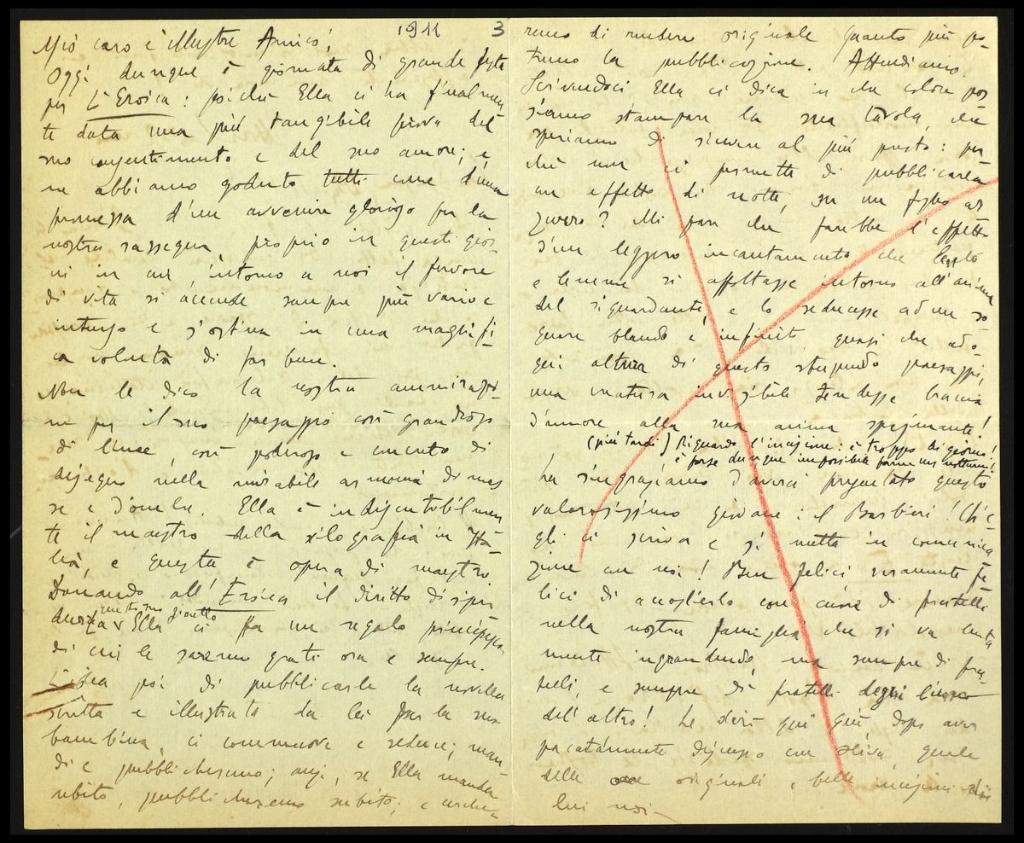 1911 3
Mio caro e illustre Amico,
Oggi dunque è giornata di grande festa
per L'Eroica: poiché Ella ci ha finalmen
te data una più tangibile prova del
suo consentimento e del suo amore; e
ne abbiamo goduto tutti come d'una
promessa d'un avvenire glorioso per la
nostra rassegna, proprio in questi gior
ni in cui intorno a noi il fervore
di vita si accende sempre più vario e
intenso e s'ostina in una magnifi-
ca volontà di far bene.
Non le dico la nostra ammirazio-
ne per il suo paesaggio così grandioso
di linee, così poderoso e
disegno nella mirabile armonia di mas
se e d'ombre. Ella è indiscutibilmen
te il maestro della xilografia in Ita
lia, e questa è opera di maestro.
Donando all'Eroica il diritto di ripro
durre questo suo gioiello Ella ci fa un regalo principesco
di cui le saremo grati ora e sempre.
L'idea poi di pubblicare la novella
scritta e illustrata da lei per la sua
bambina, ci commuove e seduce; man
di e pubblicheremo; anzi, se Ella manda
subito, pubblicheremo subito; e cerche-
remo di rendere originale quanto più po-
tremo la pubblicazione. Attendiamo.
Scrivendoci Ella ci dica in che colore pos
siamo stampare la sua tavola, che
speriamo di ricevere al più presto: per
ché non ci permette di pubblicarla
con effetto di notte, su un foglio az
zurro? Mi pare che farebbe l'effetto
d'un leggero incantamento che
e lenemente si affollasse intorno all'anima
del riguardante e lo seducesse ad un so
gnare blando e infinito, quasi che ad o-
gni altezza di questo stupendo paesaggio,
una creatura invisibile tendesse braccia
d'amore alla sua anima
(più tardi) Riguardo l'incisione: è troppo di giorno!
è forse dunque impossibile farne un notturno!
La ringraziamo d'averci presentato questo
valorosissimo giovane: il Barbieri! Ch'e-
gli ci scriva e si metta in comunica
zione con noi! Ben felici veramente fe
lici di accoglierlo con cuore di fratelli
nella nostra famiglia che si va lenta
mente ingrandendo, ma sempre di fra
telli, e sempre di fratelli degni l'uno
dell'altro! Le dirò qui giù dopo aver
pacatamente discusso con Oliva, quale
delle originali e belle incisioni
lui noi